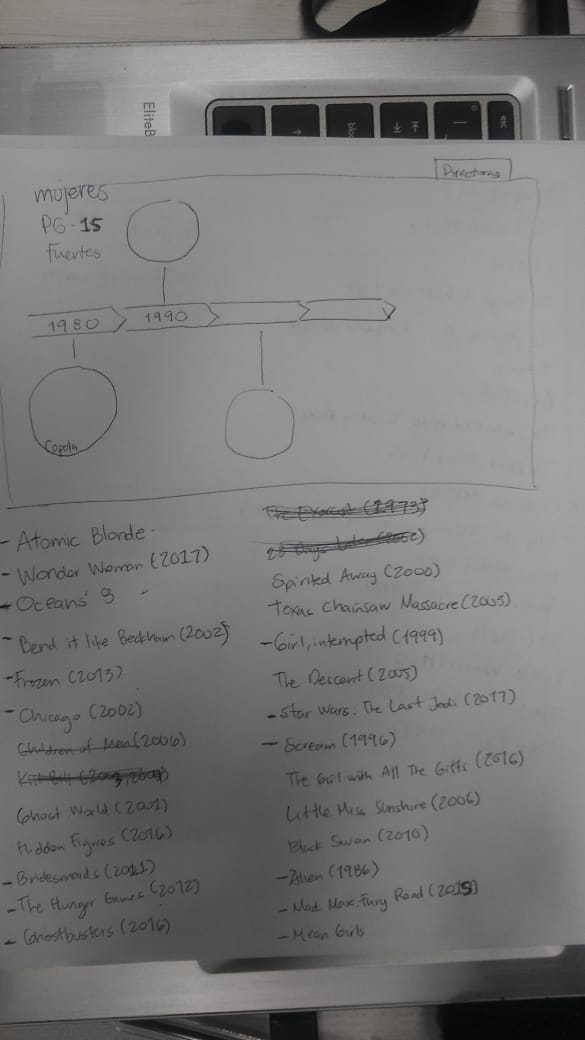 EliteB
esc
Directoras
mujeres
PG-15
Fuertes
1980
1990
Copola
- Atomic Blonde
- Wonder Woman (2017)
- Oceans' 8
- Bend it like Beckham (2002)
- Frozen (2013)
- Chicago (2002)
Children of Men (2006)
Kill Bill (2003, 2004)
Ghost World (2001)
Hidden Figures (2016)
- Bridesmaids (2011)
- The Hunger Games (2012)
- Ghostbusters (2016)
The Exorcist (1973)
28 Days Later (2002)
Spirited Away (2000)
Texas Chainsaw Massacre (2005)
- Girl, interrupted (1999)
The Descent (2005)
- Star Wars: The Last Jedi (2017)
- Scream (1996)
The Girl with All The Gifts (2016)
Little Miss Sunshine (2006)
Black Swan (2010)
- Alien (1986)
- Mad Max: Fury Road (2015)
- Mean Girls